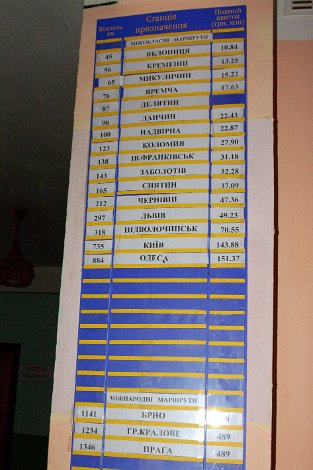 Відстань, км Станція призначення Повний квиток (грн, коп)
МІЖОБЛАСНІ МАРШРУТИ
45 ЯБЛОНИЦЯ 10.84
56 КРЕМЕНЦІ 13.25
65 МИКУЛИЧИН 15.22
76 ЯРЕМЧА 17.63
87 ДЕЛЯТИН
98 ЛАНЧИН 22.43
100 НАДВІРНА 22.87
123 КОЛОМИЯ 27.90
138 ІВ.ФРАНКІВСЬК 31.18
143 ЗАБОЛОТІВ 32.28
165 СНЯТИН 37.09
212 ЧЕРНІВЦІ 47.36
297 ЛЬВІВ 49.23
318 ПІДВОЛОЧИСЬК 70.55
735 КИЇВ 143.88
884 ОДЕСА 151.37
МІЖНАРОДНІ МАРШРУТИ
1141 БРНО
1234 ГР.КРАЛОВЕ 489
1346 ПРАГА 489